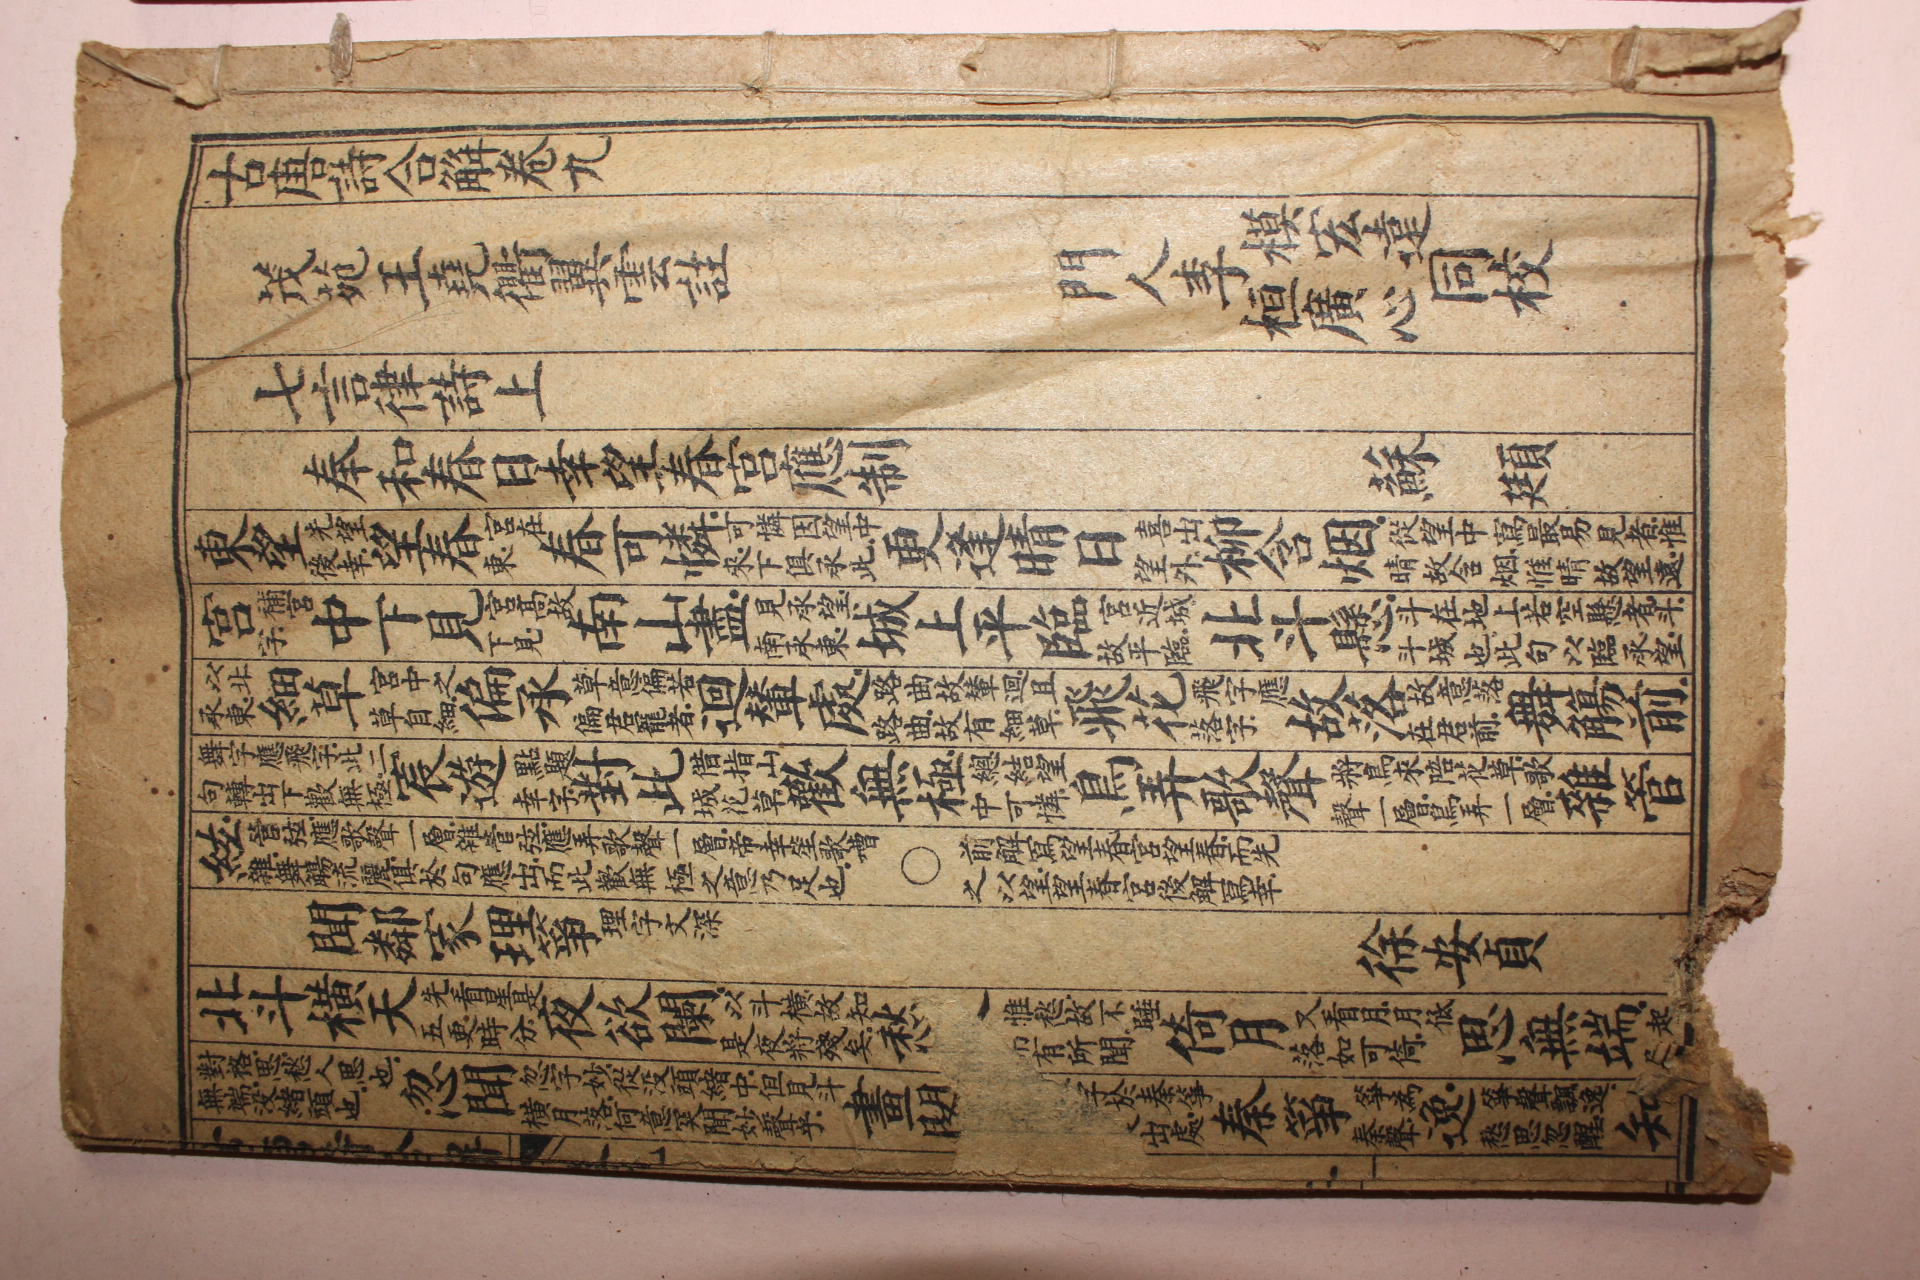 古唐詩合解卷九
茂苑王堯衢翼雲註 門人李模宏遠桓廣心同校
七言律詩上
奉和春日幸望春宮應制 蘇頲
東望先望後幸望春宮在東春可憐可憐因望中來下俱承此更逢晴日喜出望外柳含烟從望中寫最易見者惟晴故含烟惟晴故望遠
宮補宮字中下見宮高故下見南山盡見承望南承東城上平臨宮近城故平臨北斗懸斗在地上若空懸者斗斗城也此句以臨承望
以北承東細草宮中之草自細偏承草意偏若偏君寵者迴輦處路曲故輦迴且路曲故有細草飛花飛字應落字故落故意落在君前舞觴前
舞字應飛字此二句轉出下歡無極宸遊點題幸字對此借指山城花草歡無極總結望中可憐鳥弄歌聲將鳥來陪花草歌聲一層鳥弄一層雜管
絃管弦應歌聲一層雜管弦應弄歌聲一層帝幸笙歌嘈雜舞觴流麗俱於句應出而此歡無極之意乃足也○前解寫望春宮望春而先之以望望春宮後解寫幸
聞鄰家理箏理字文深 徐安貞
北斗橫天先看星是五更時分夜欲闌以斗橫故知是夜將殘矣愁惟愁故不睡有所聞倚月又看月月低落如可倚思無端起
對格思愁人思也無端沒緒頭也忽聞忽字妙從沒頭緒中但見斗橫月落何意突聞妙聲乎畫閣字於秦箏出處秦箏箏為秦聲逸箏聲飄逸愁思忽醒知